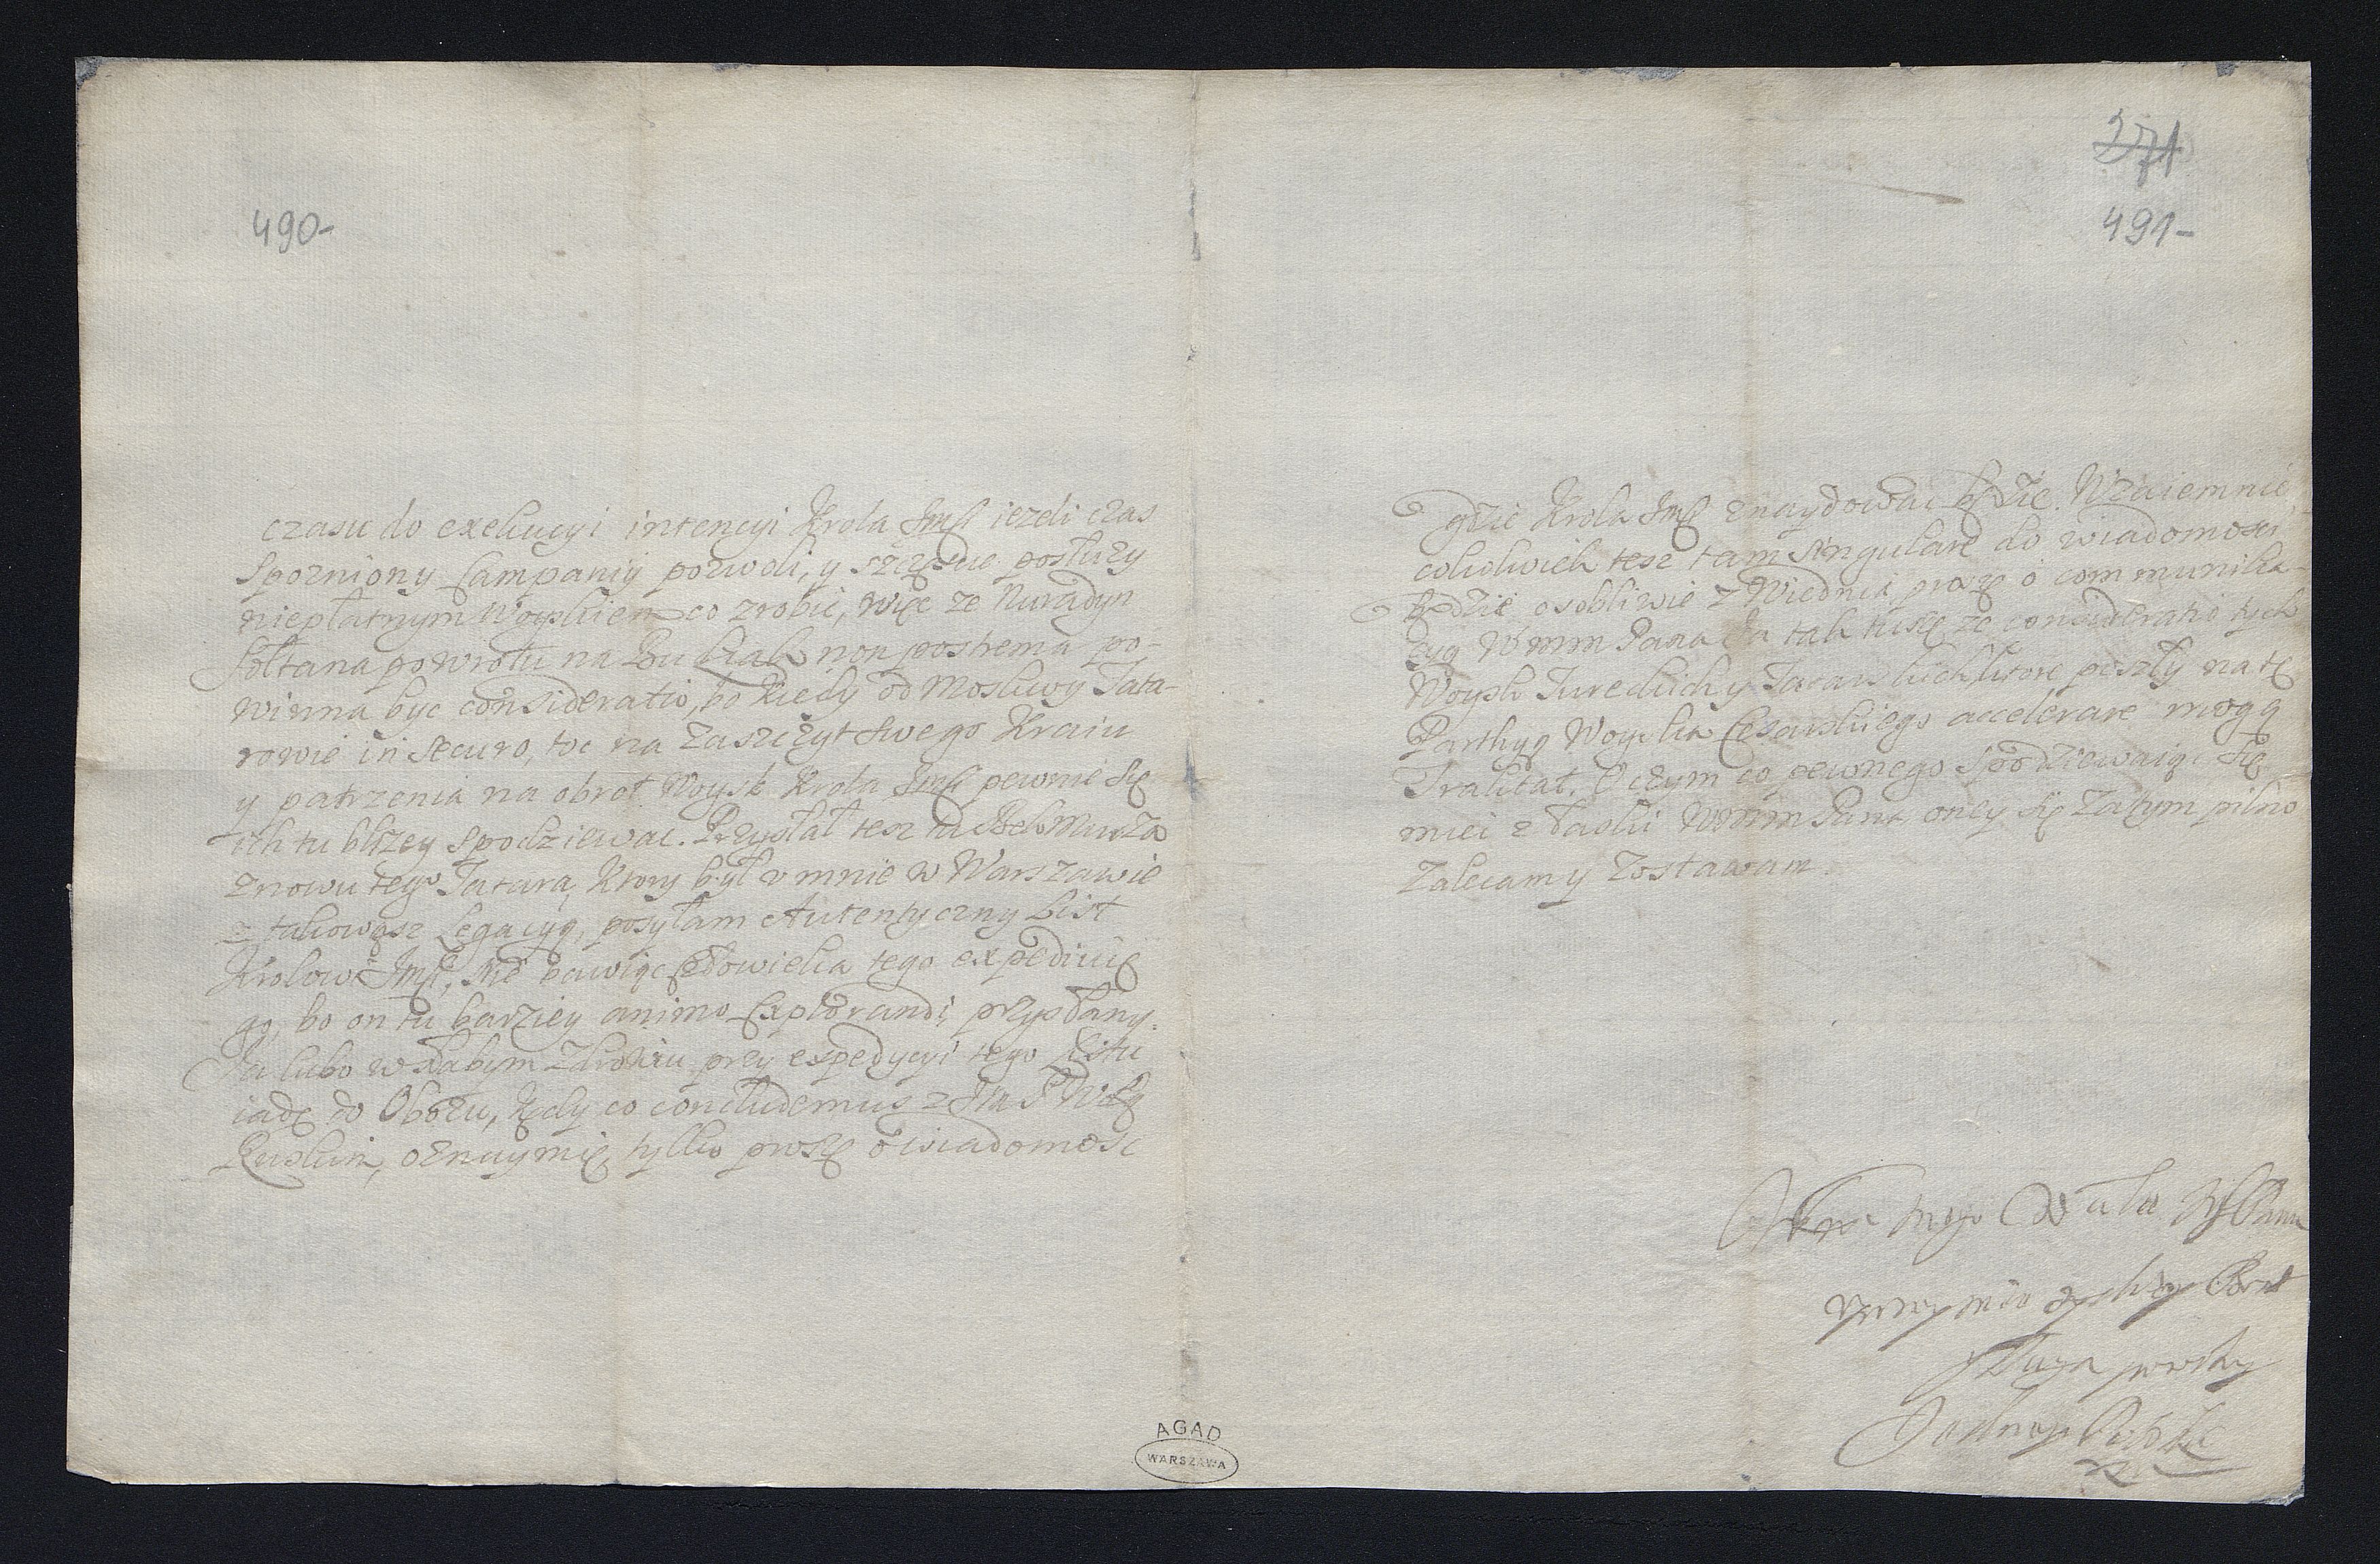 490-
czasu do exekucyi intencyi Krola Jmsi iezeli czas
Spozniony Campanij pozwoli, y szczęscie posłuzy
niepłatnym Woyskiem co zrobic, więc ze Nuradyn
Sołtana powrotu na Budziak non postrema po-
winna byc consideratio, bo kiedy od Moskwy Tata-
rowie in securo, toc na Zaszczyt swego Kraiu
y patrzenia na obrot Woysk Krola Jmsi pewnie się
ich tu blizey spodziewac. Przysłał tesz tu Murza
znowu tego Tatara, ktory był v mnie w Warszawie
z takowąsz Legacyą, posyłam Autentyczny List
Krolowi Jmsi, Nie bawiąc człowieka tego expediuię
go, bo on tu barziey animo explorandi przysłany.
Ja lubo w słabym zdrowiu przy expedycyi tego Listu
iadę do Obozu, kędy co concludemus z Jm P Wdą
Ruskim, oznaymię tylko proszę o wiadomosc
271
491-
gdzie Krola Jmsi znaydowac będzie. Wzaiemnie
cokolwiek tesz tam singulare do wiadomosci
będzie osobliwie z Wiednia, proszę o communika-
cyą Wmm Pana Ja tak tuszę ze consideratio tych
Woysk Tureckich y Tatarskich, ktore poszły na tę
Parthyą Woyska Cesarskiego accelerare mogą
Traktat. O czym co pewnego spodziewaiąc się
miec z łaski Wmm Pana oney się zatym pilno
Zalecam y Zostawam
mego Pana
zyczliwy Brat
y sługa
AGAD
WARSZAWA